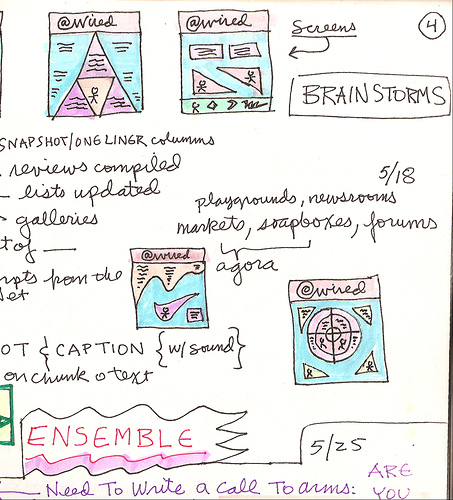 @wired
@wired
Screens
4
BRAINSTORMS
SNAPSHOT/ONE LINER columns
reviews compiled
lists updated
galleries
5/18
playgrounds, newsrooms
markets, soapboxes, forums
agora
t of
from the
@wired
@wired
OT & CAPTION {w/ sound}
on chunk o text
ENSEMBLE
5/25
Need To Write a call To arms:
ARE
YOU